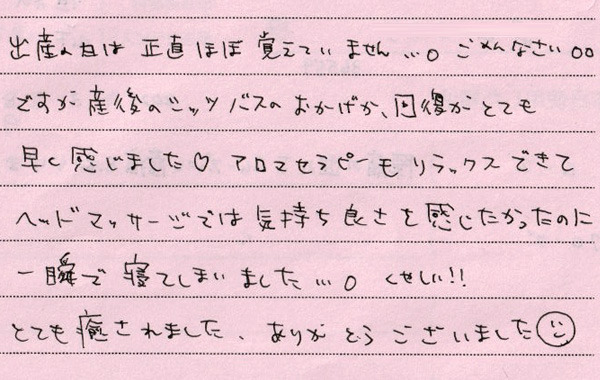 出産の日は 正直ほぼ 覚えていません…。ごめんなさい。。
ですが産後のシッツバスのおかげか、回復がとても
早く感じました♡ アロマセラピーもリラックスできて
ヘッドマッサージでは気持ち良さを感じたかったのに
一瞬で寝てしまいました…。くやしい!!
とても癒されました、ありがとうございました☺